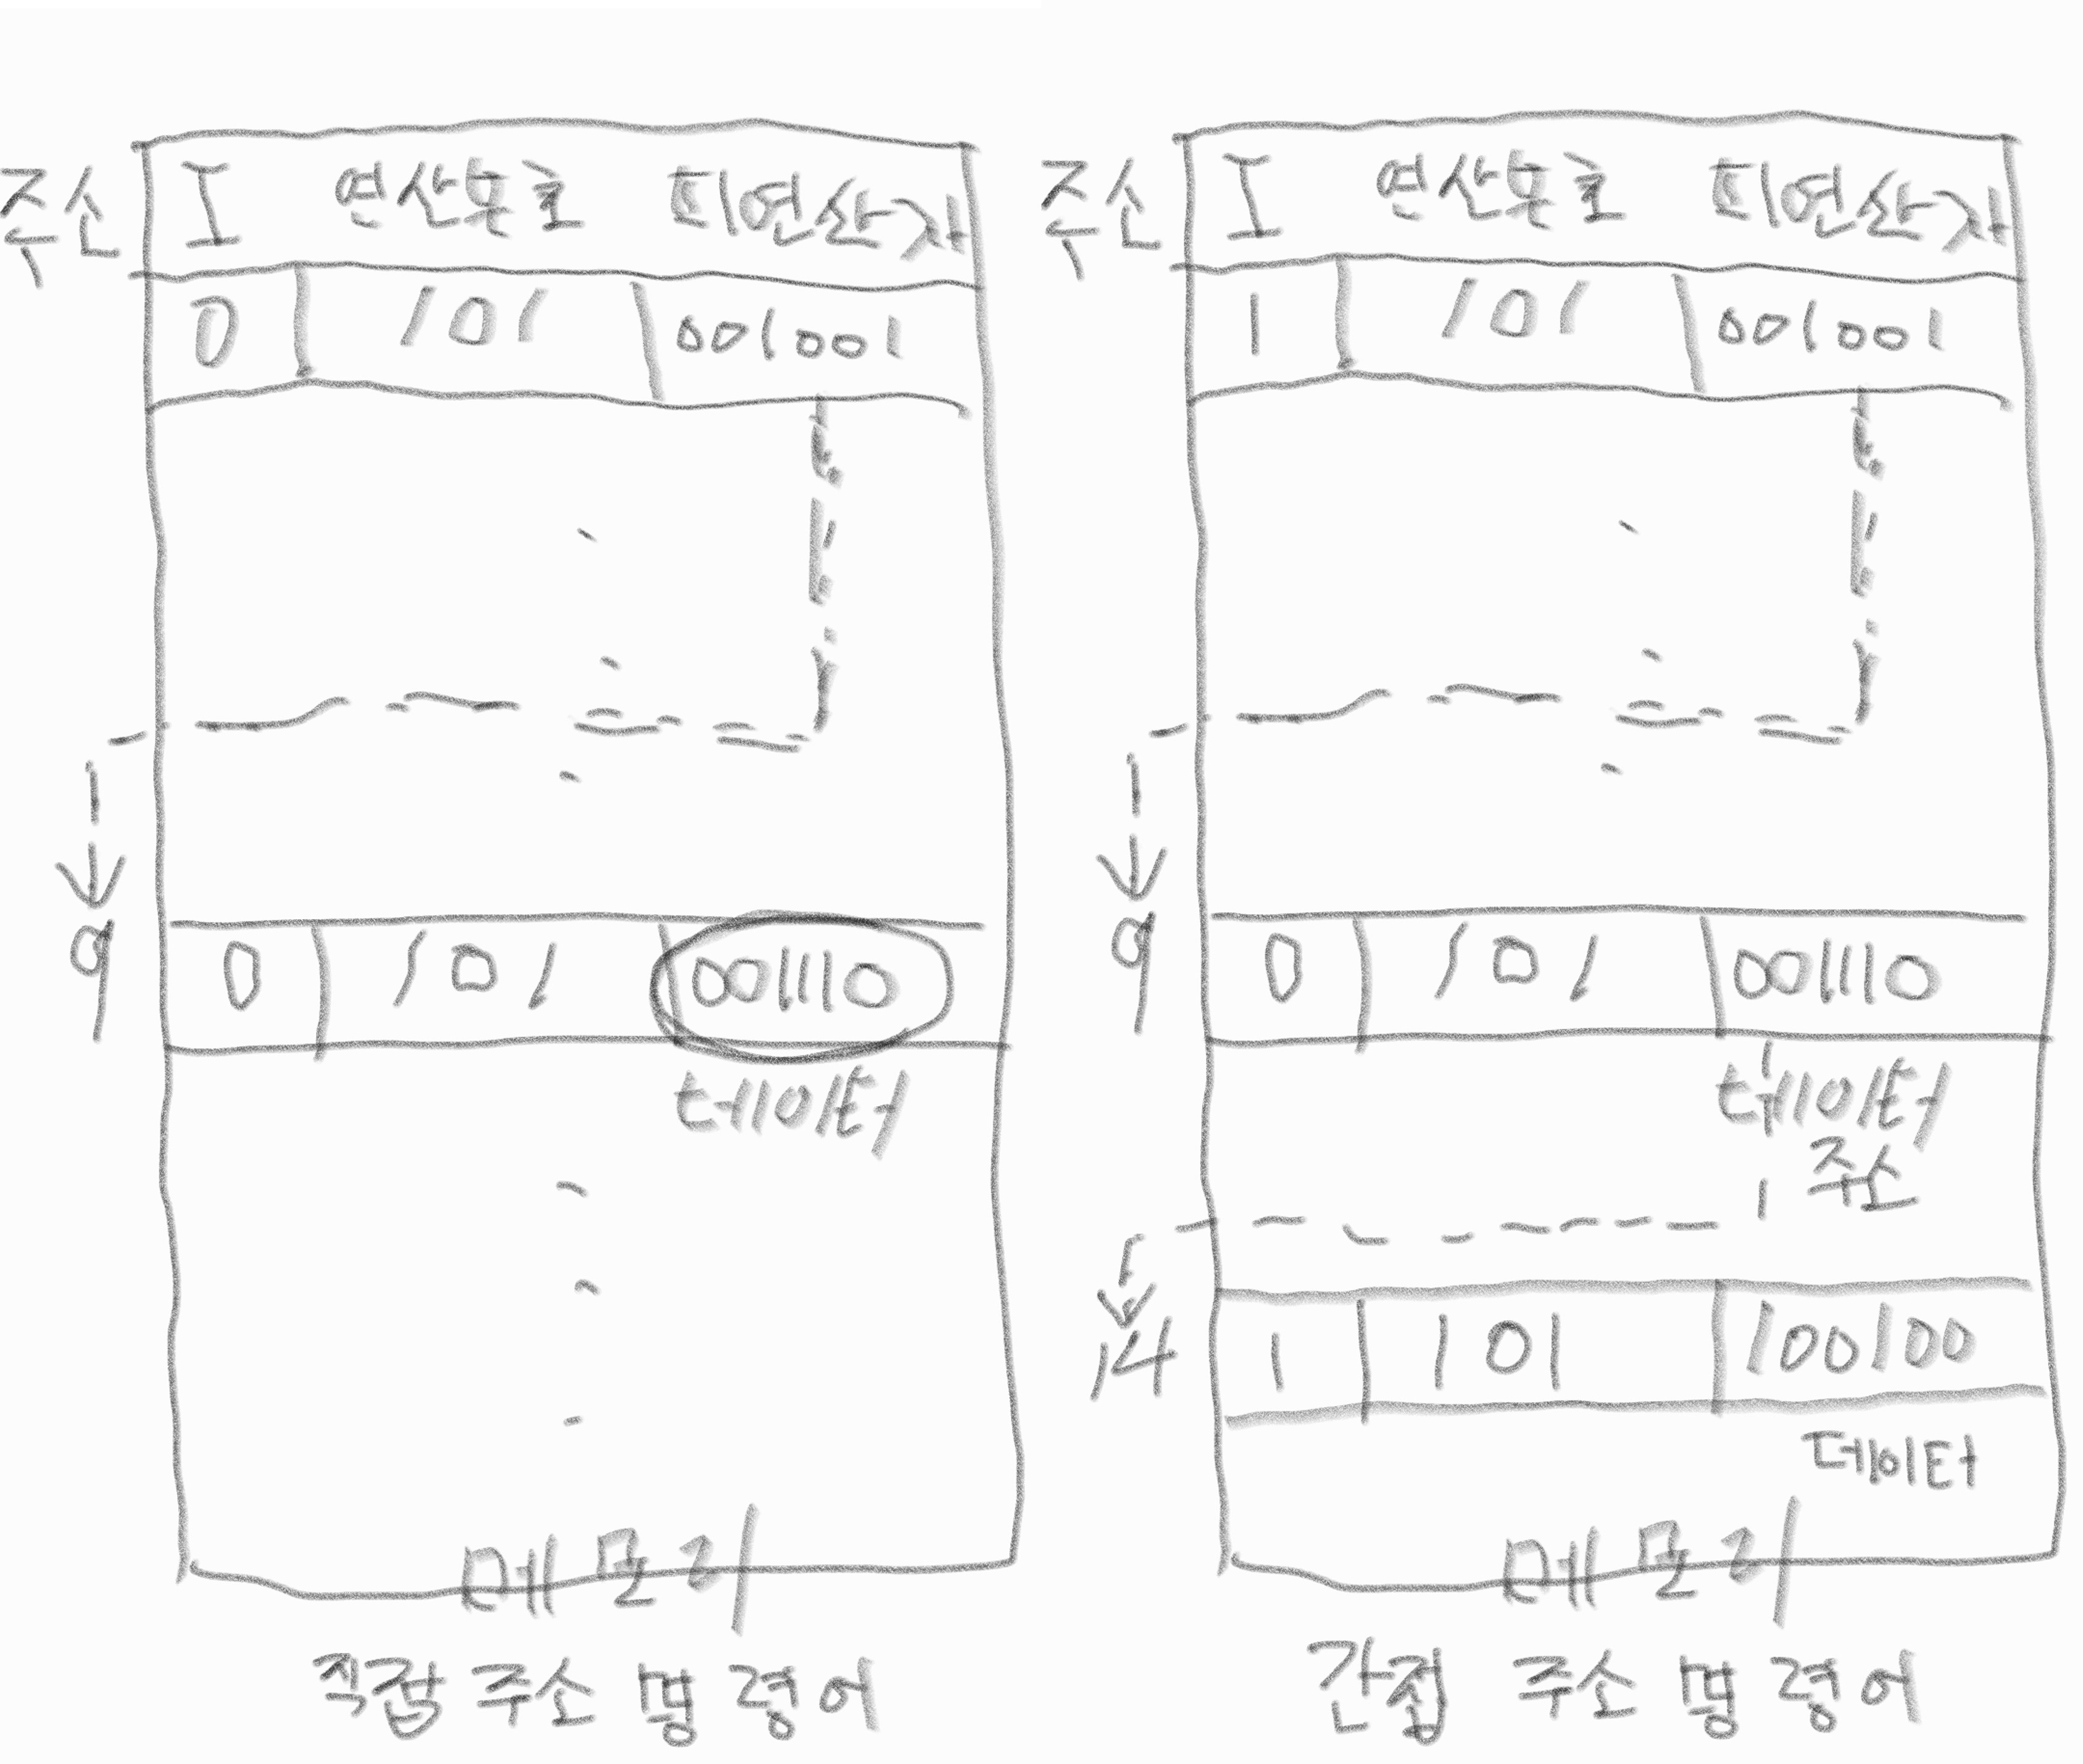 주소 I 연산부호 피연산자
0 101 001001
9 0 101 001110
데이터
메모리
직접 주소 명령어
주소 I 연산부호 피연산자
1 101 001001
9 0 101 001110
데이터
주소
14 1 101 100100
데이터
메모리
간접 주소 명령어